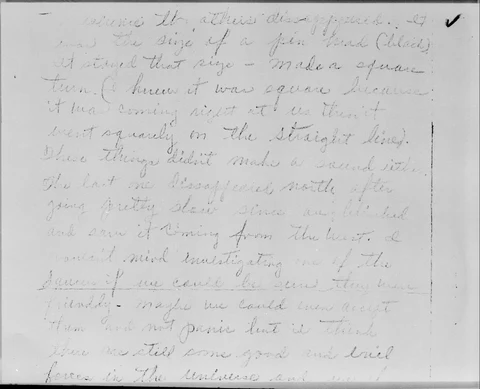 the others disappeared. It
was the size of a pin head (black)
It stayed that size - made a square
turn. (I knew it was square because
it was coming right at us then it
went squarely on the straight line).
These things didn't make a sound
The last one dissappeared north after
going pretty slow since
and saw it coming from the West. I
wouldn't mind investigating one of the
Saucers if we could be sure they were
friendly - maybe we could even accept
them and not panic but I think
there are still some good and evil
forces in the universe and